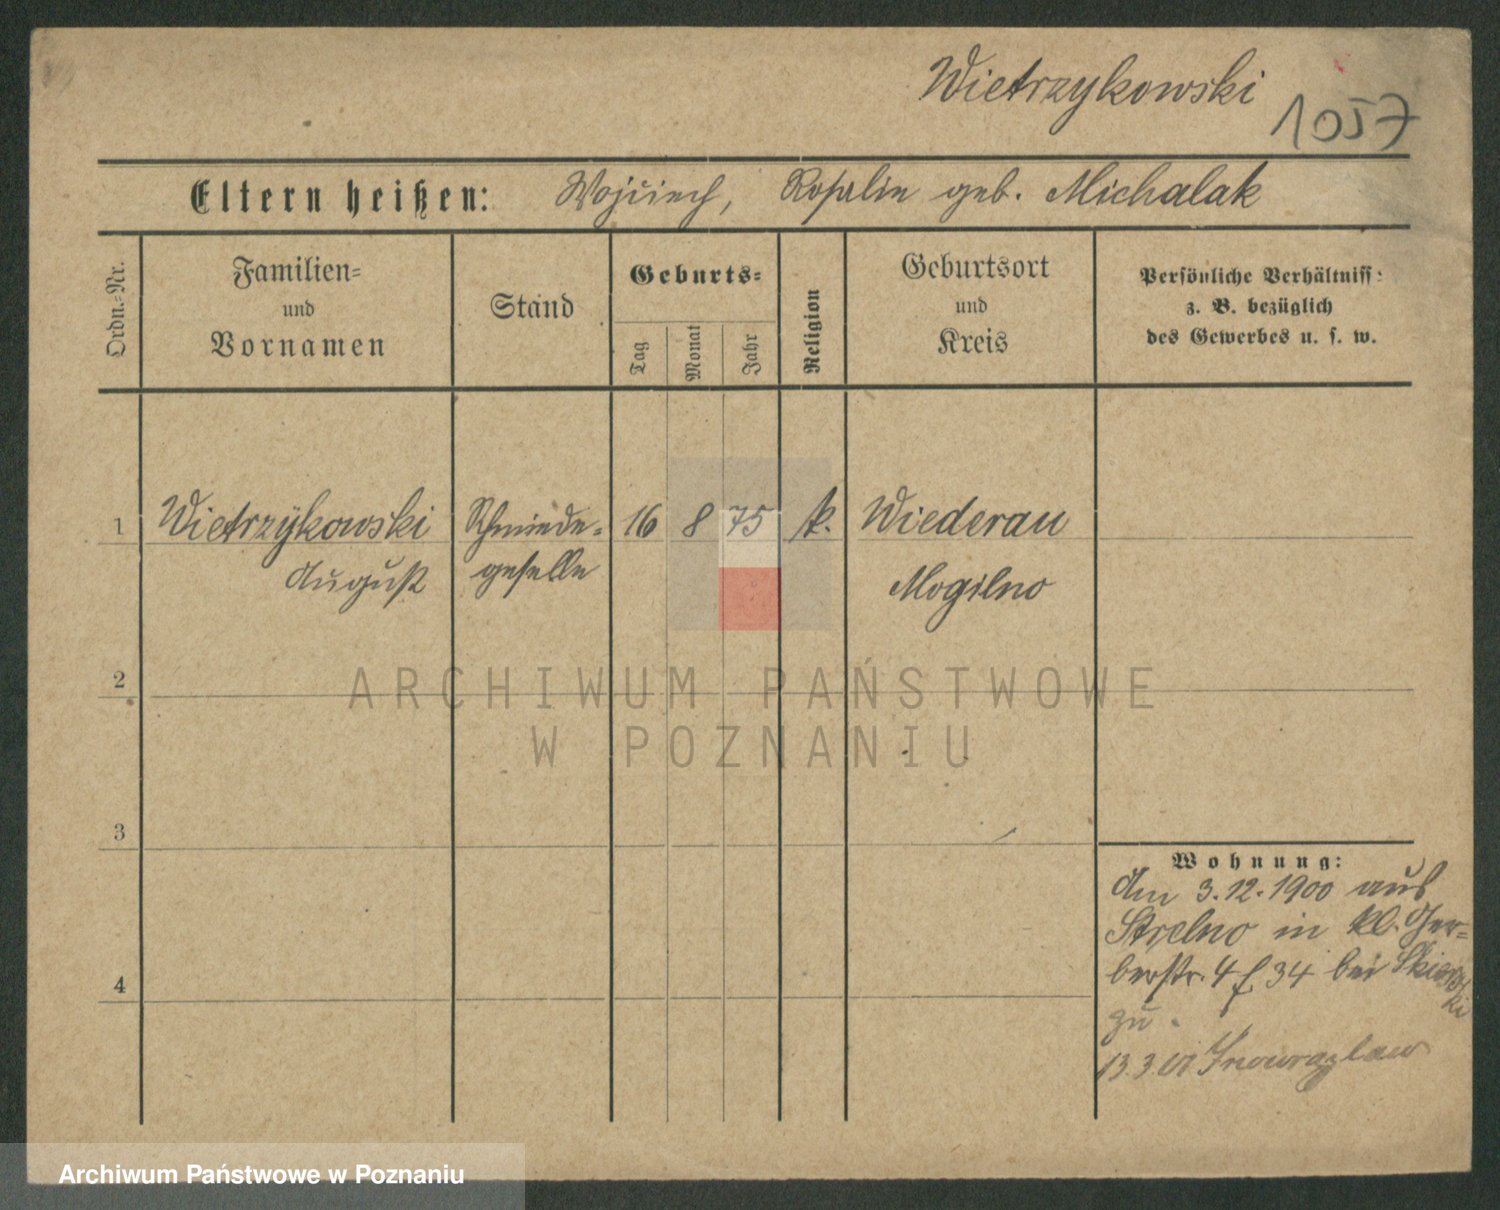 Wietrzykowski
1057
Eltern heißen: Wojciech, Rosalie geb. Michalak
Ordn.-Nr.
Familien-
und
Vornamen
Stand
Geburts-
Tag
Monat
Jahr
Religion
Geburtsort
und
Kreis
Persönliche Verhältniss:
z. B. bezüglich
des Gewerbes u. s. w.
1 Wietrzykowski Schmiede- 16 8 75 k. Wiederau
August geselle Mogilno
2
3
4
Wohnung:
Am 3.12.1900 aus
Strelno in kl. Ger-
berstr. 4 f. 34 bei
zu.
13.3.01 Inowrazlaw
ARCHIWUM PAŃSTWOWE
W POZNANIU
Archiwum Państwowe w Poznaniu